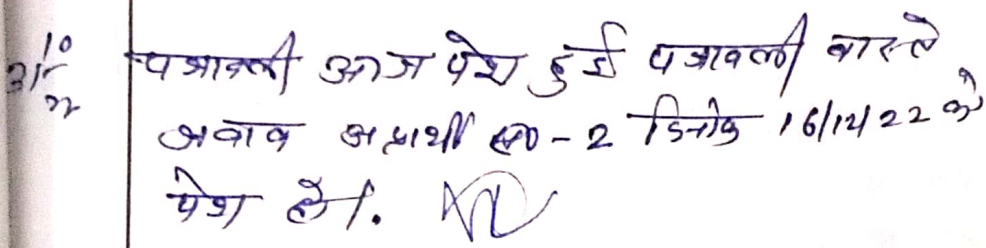 31/10/22
पत्रावली आज पेश हुई पत्रावली वास्ते
जवाब अप्रार्थी सं0-2 दिनांक 16/12/22 को
पेश हो।